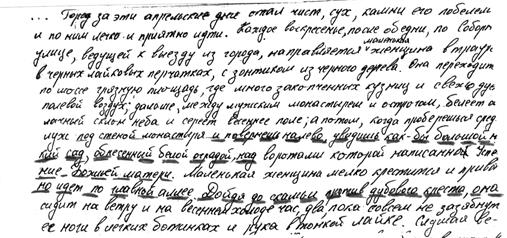 ... Город за эти апрельские дни стал чист, сух, камни его побелели
и по ним легко и приятно идти. Каждое воскресенье, после обедни, по Соборн
улице, ведущей к выезду из города, направляется маленькая женщина в трауре
в черных лайковых перчатках, с зонтиком из черного дерева. Она переходит
по шоссе грязную площадь, где много закопченных кузниц и свежо дуе
полевой воздух; дальше, между мужским монастырем и острогом, белеет о
лачный склон неба и сереет весеннее поле; а потом, когда проберешься сред
луж под стеной монастыря и повернешь налево, увидишь как-бы большой н
кий сад, обнесенный белой оградой, над воротами которой написанна Успе
ние Божией матери. Маленькая женщина мелко крестится и привы
но идет по главной аллее. Дойдя до скамьи против дубового креста, она
сидит на ветру и на весеннем холоде час, два, пока совсем не зазябнут
ее ноги в легких ботинках и рука в тонкой лайке. Слушая ве-